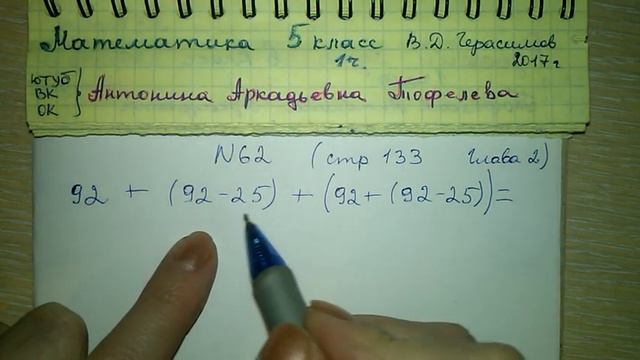 Математика 5 класс В.Д. Герасимов
1ч. 2017г
ЮТУБ
ВК
ОК
Антонина Аркадьевна Тофелева
N62 (стр 133 глава 2)
92 + (92-25) + (92+(92-25))=